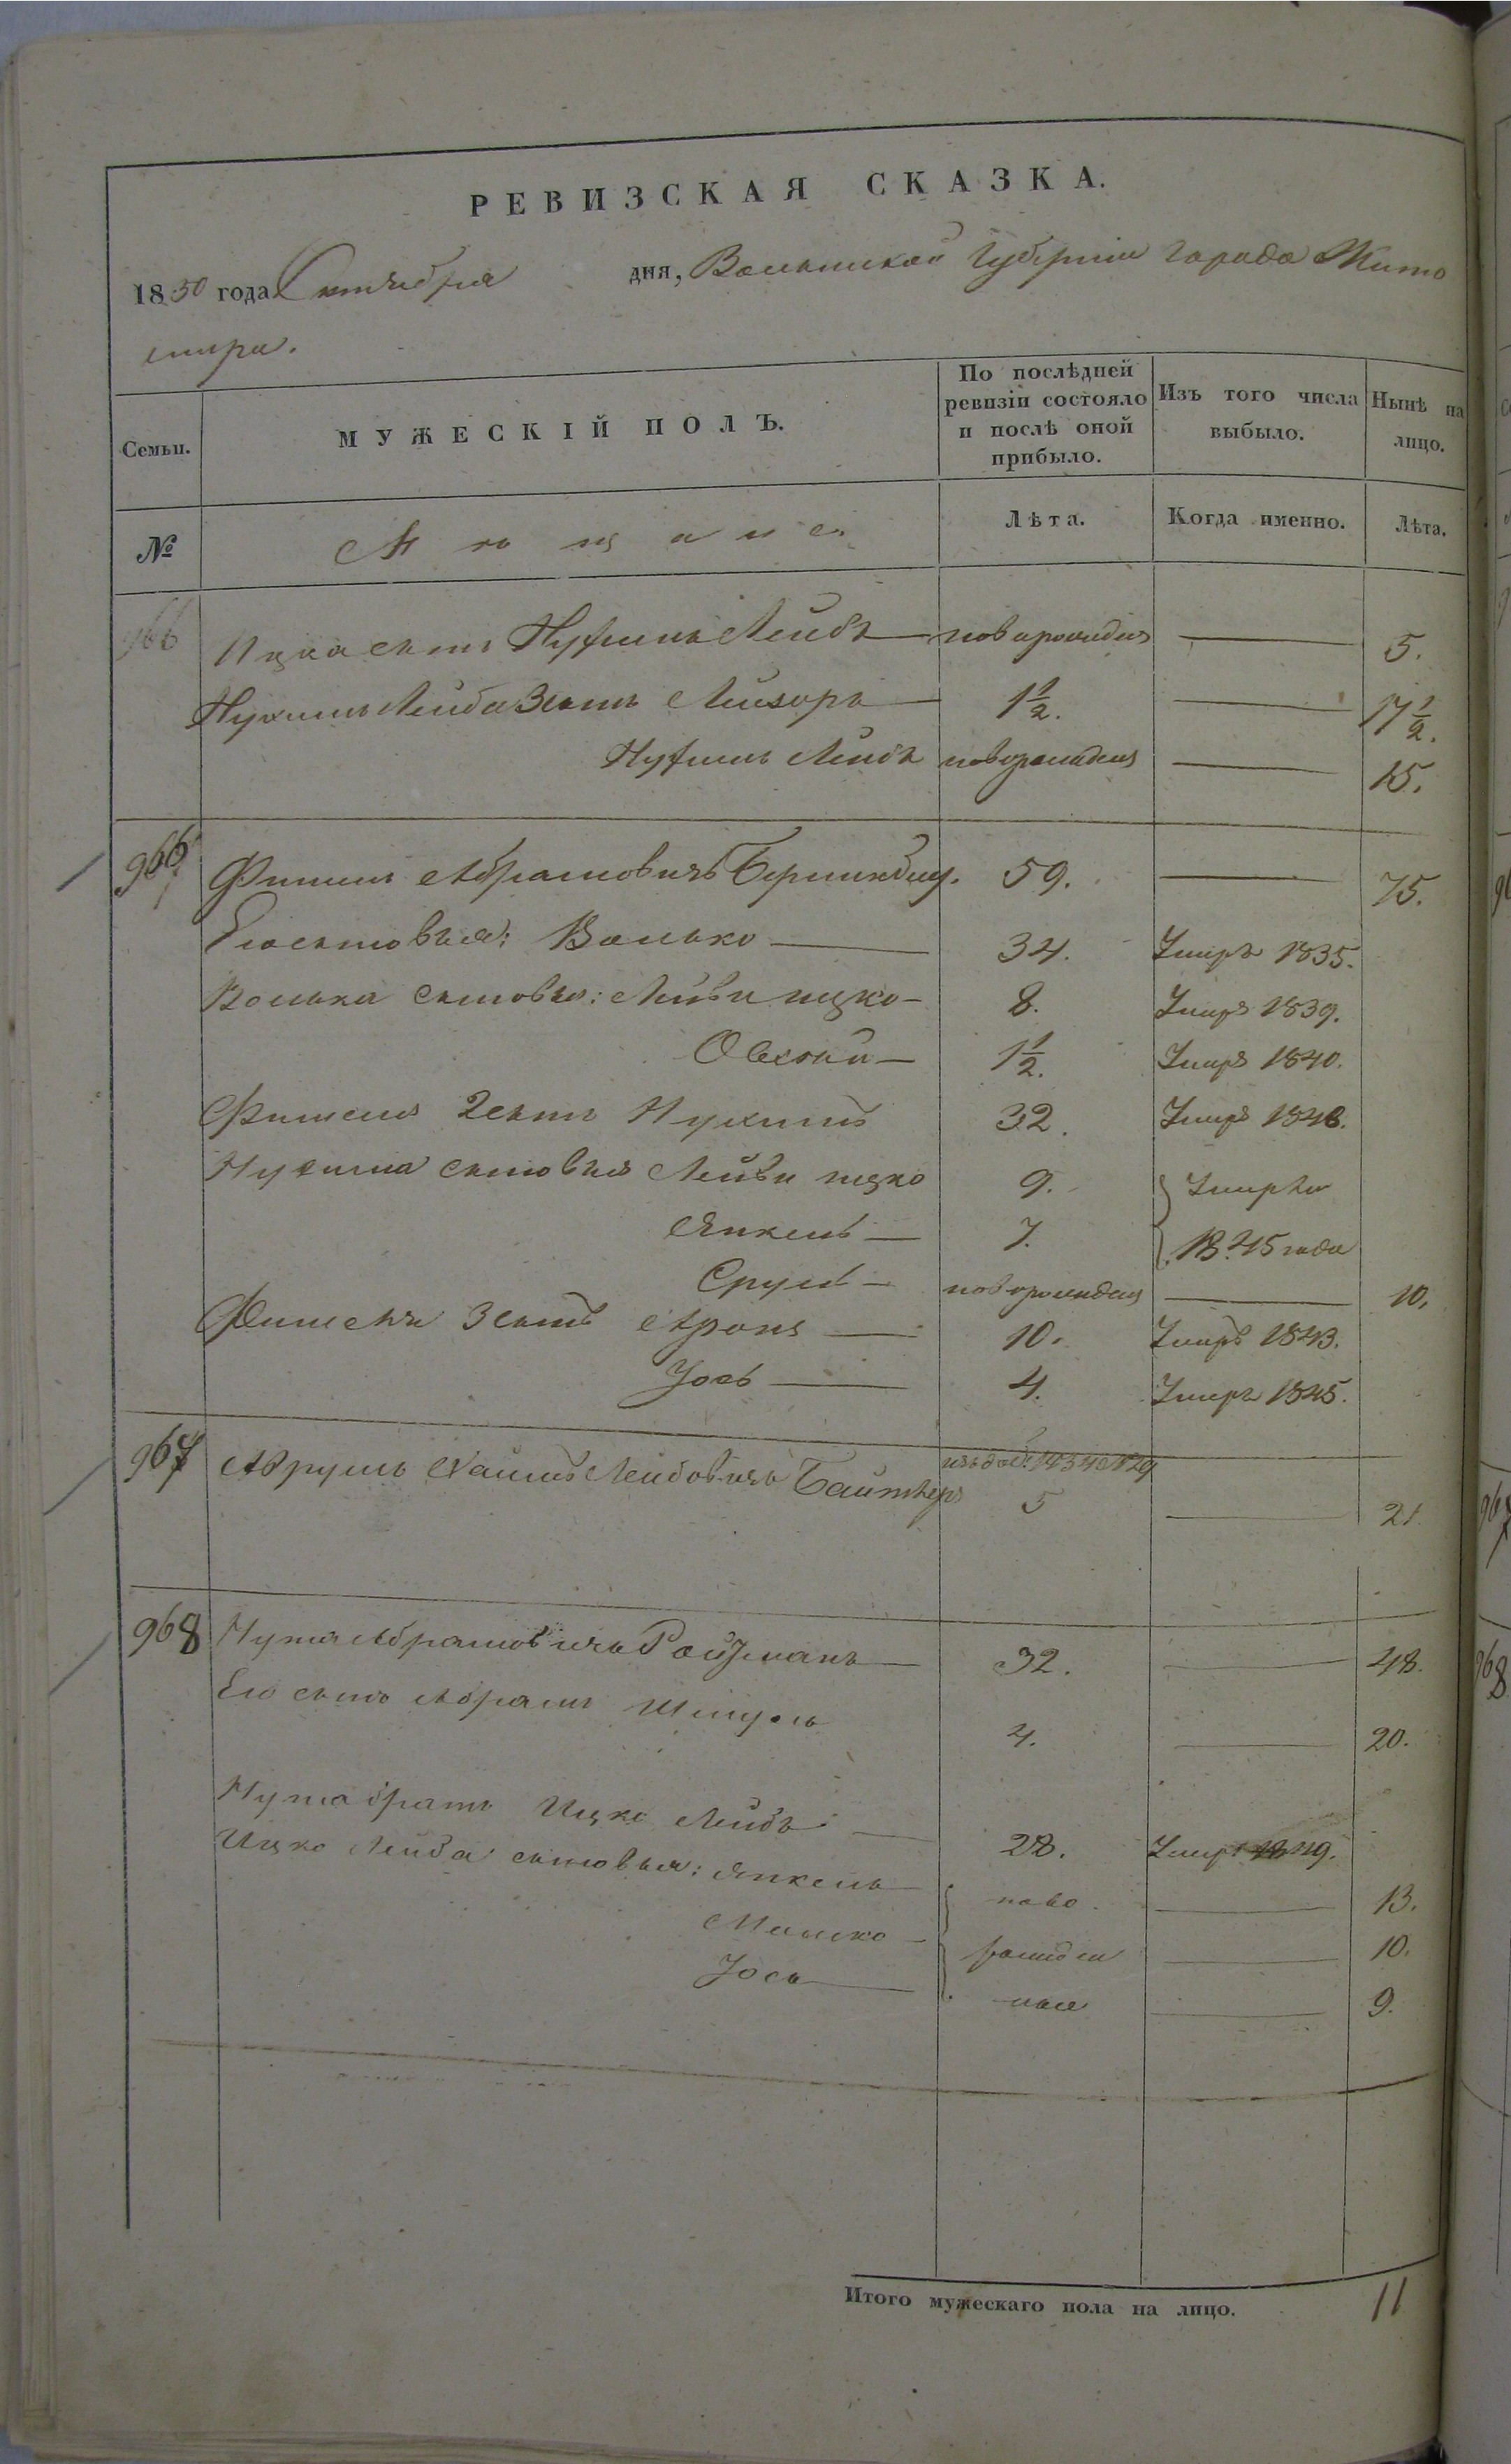 РЕВИЗСКАЯ СКАЗКА.
1850 года Октября дня, Волынской Губерніи города Жито
мира.
Семьи. МУЖЕСКІЙ ПОЛЪ. По послѣдней ревизіи состояло и послѣ оной прибыло. Изъ того числа выбыло. Нынѣ на лицо.
№ Мѣщане Лѣта. Когда именно. Лѣта.
966 Ицка сынъ Нухимъ Лейбъ новорожден 5.
Нухимъ Лейба 3 сынъ Лейзоръ 1½. 17½.
Нухимъ Лейбъ новорожден 15.
966 Фишель Абрамовичъ 59. 75.
Его сыновья: Волько 34. Умеръ 1835.
Волька сыновья: Лейби ицко 8. Умеръ 1839.
1½. Умеръ 1840.
Фишеля 2 сынъ Нухимъ 32. Умеръ 1846.
Нухима сыновья Лейби ицко 9. Умерли
Янкель 7. 1845 года
Сруль новорожден 10.
Фишеля 3 сынъ Аронъ 10. Умеръ 1843.
Іось 4. Умеръ 1845.
967 Аврумъ Хаимъ Лейбовичъ 5 21
968 Нута Абрамовичъ Ройзманъ 32. 48.
Его сынъ Абрамъ Шмуль 4. 20.
Нута братъ Ицко Лейбъ 28. Умеръ 1849.
Ицко Лейба сыновья: Янкель ново 13.
Мошко рожден 10.
Іось ные 9.
Итого мужескаго пола на лицо. 11